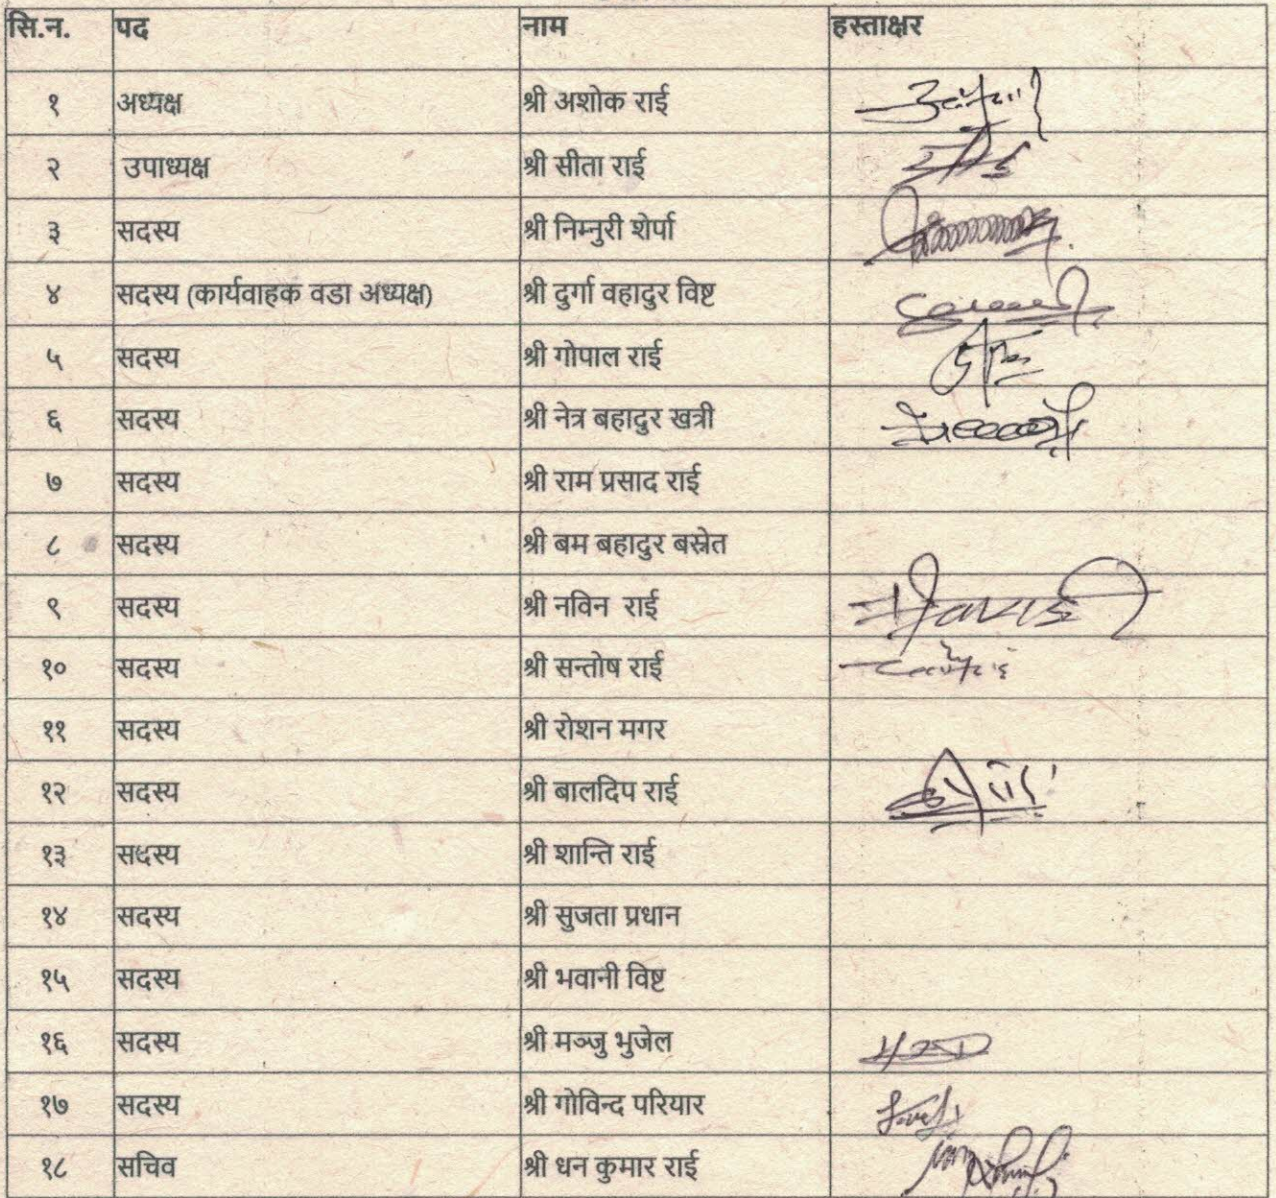 सि.न. पद नाम हस्ताक्षर
१ अध्यक्ष श्री अशोक राई
२ उपाध्यक्ष श्री सीता राई
३ सदस्य श्री निम्नुरी शेर्पा
४ सदस्य (कार्यवाहक वडा अध्यक्ष) श्री दुर्गा वहादुर विष्ट
५ सदस्य श्री गोपाल राई
६ सदस्य श्री नेत्र बहादुर खत्री
७ सदस्य श्री राम प्रसाद राई
८ सदस्य श्री बम बहादुर बस्नेत
९ सदस्य श्री नविन राई
१० सदस्य श्री सन्तोष राई
११ सदस्य श्री रोशन मगर
१२ सदस्य श्री बालदिप राई
१३ सदस्य श्री शान्ति राई
१४ सदस्य श्री सुजता प्रधान
१५ सदस्य श्री भवानी विष्ट
१६ सदस्य श्री मञ्जु भुजेल
१७ सदस्य श्री गोविन्द परियार
१८ सचिव श्री धन कुमार राई